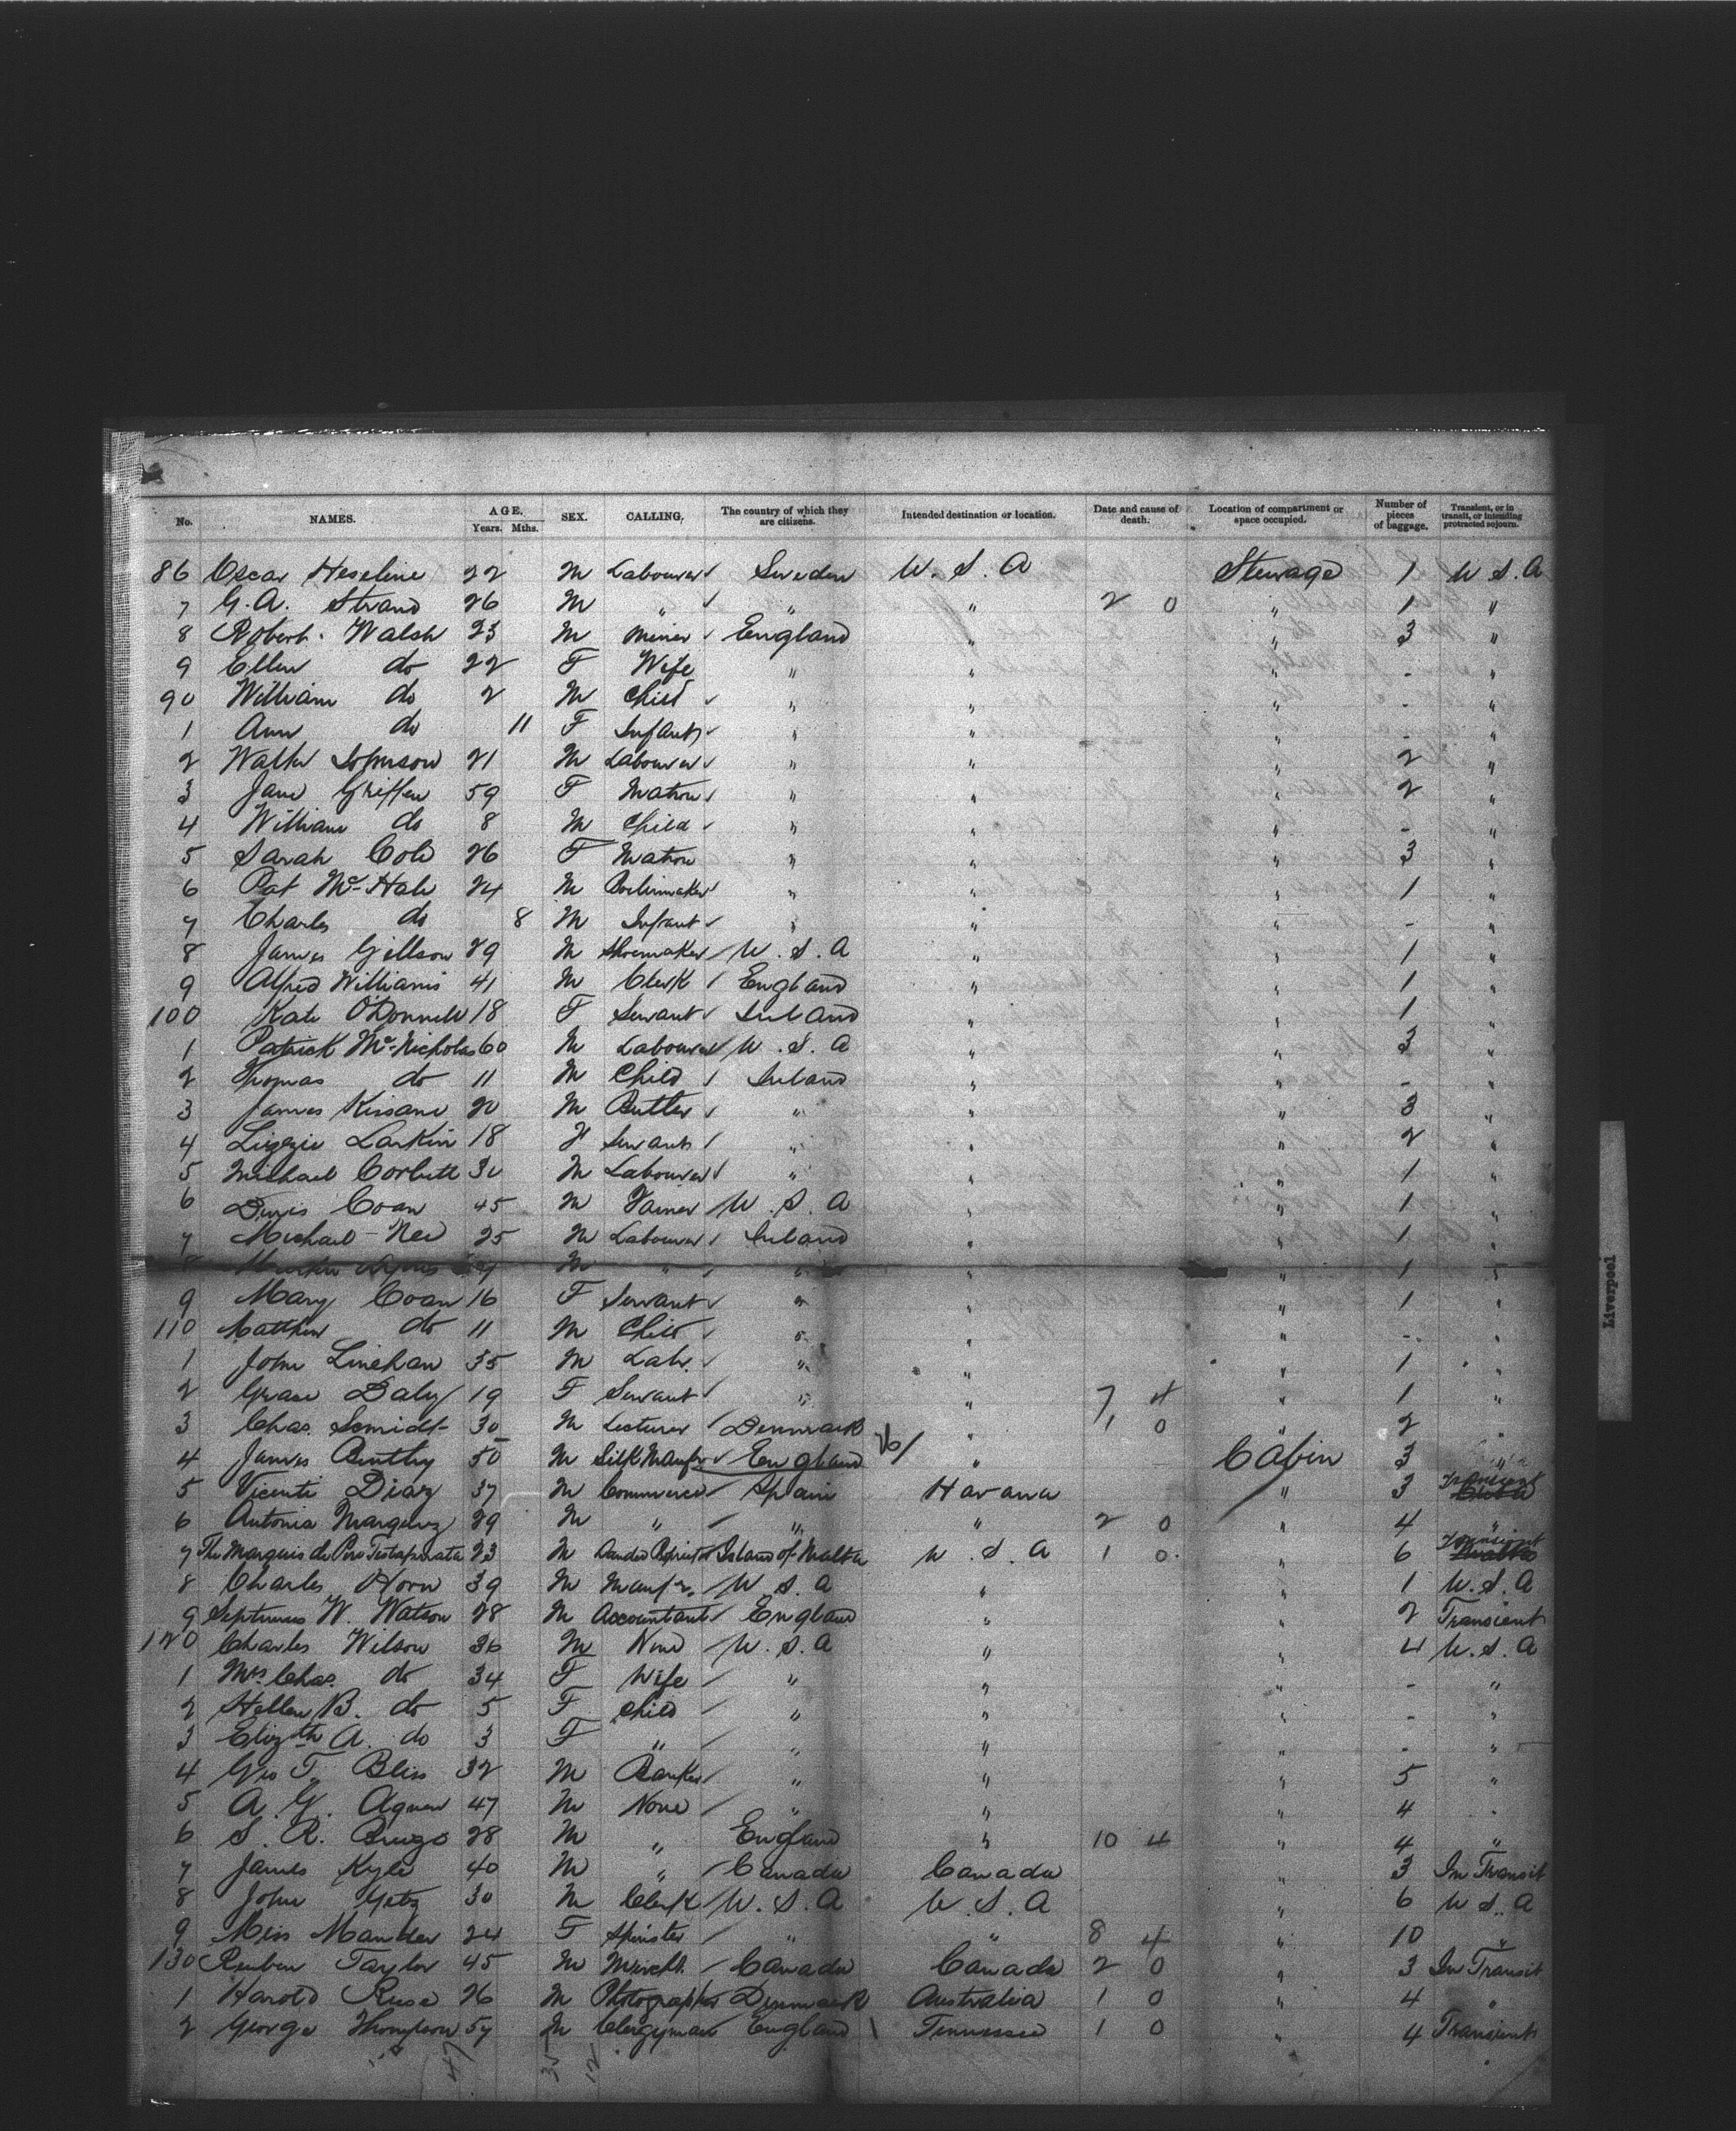 No. NAMES. AGE. Years. Mths. SEX. CALLING. The country of which they are citizens. Intended destination or location. Date and cause of death. Location of compartment or space occupied. Number of pieces of baggage. Transient, or in transit, or intending protracted sojourn.
86 Oscar Heseline 22 M Labourer Sweden U. S. A Steerage 1 U S. A
7 G. A. Strand 26 M " " " 2 0 " 1 "
8 Robert Walsh 23 M Miner England " " 3 "
9 Ellen do 22 F Wife " " " - "
90 William do 2 M Child " " " - "
1 Ann do 11 F Infant " " " - "
2 Walter Johnson 21 M Labourer " " " 2 "
3 Jane Griffen 59 F Matron " " " 2 "
4 William do 8 M Child " " " - "
5 Sarah Cole 26 F Matron " " " 3 "
6 Pat McHale 24 M Boilermaker " " " 1 "
7 Charles do 8 M Infant " " " - "
8 James Gillson 29 M Shoemaker U. S. A " " 1 "
9 Alfred Williams 41 M Clerk England " " 1 "
100 Kate O'Donnell 18 F Servant Ireland " " 1 "
1 Patrick McNicholas 60 M Labourer U. S. A " " 3 "
2 Thomas do 11 M Child Ireland " " - "
3 James Kissane 20 M Butler " " " 3 "
4 Lizzie Larkin 18 F Servant " " " 2 "
5 Michael Corbett 30 M Labourer " " " 1 "
6 Denis Coan 45 M Farmer U. S. A " " 1 "
7 Michael Nee 25 M Labourer Ireland " " 1 "
8 M " " " " 1 "
9 Mary Coan 16 F Servant " " " 1 "
110 Matthew do 11 M Child " " " - "
1 John Linehan 35 M Labr. " " " 1 "
2 Grace Daly 19 F Servant " " 7 4 " 1 "
3 Chas. Scmidt 30 M Lecturer Denmark " 1 0 " 2 "
4 James 50 M Silk Manfr England " Cabin 3 "
5 Vicente Diaz 37 M Commerce Spain Havana " 3 Transient
6 Antonia Marquez 29 M " " " 2 0 " 4 "
7 The Marquis de Piro Testaferrata 23 M Landed Proprietor Island of Malta U. S. A 1 0 " 6 Transient
8 Charles Horn 39 M Manfr. U. S. A " " 1 U. S. A
9 Septimus W. Watson 28 M Accountant England " " 2 Transient
120 Charles Wilson 36 M None U. S. A " " 4 U. S. A
1 Mrs. Chas. do 34 F Wife " " " - "
2 Hellen B. do 5 F Child " " " - "
3 Elizth A. do 3 F " " " " - "
4 Geo T. Bliss 32 M Banker " " " 5 "
5 A. G. Agnew 47 M None " " " 4 "
6 S. R. 28 M " England " 10 4 " 4 "
7 James Kyle 40 M " Canada Canada " 3 In Transit
8 John Getz 30 M Clerk U. S. A U. S. A " 6 U S. A
9 Miss 24 F Spinster " " 8 4 " 10 "
130 Reuben Taylor 45 M Mercht. Canada Canada 2 0 " 3 In Transit
1 Harold 26 M Photographer Denmark Australia 1 0 " 4 "
2 George Thompson 57 M Clergyman England Tennessee 1 0 " 4 Transient
47 35 12
Liverpool